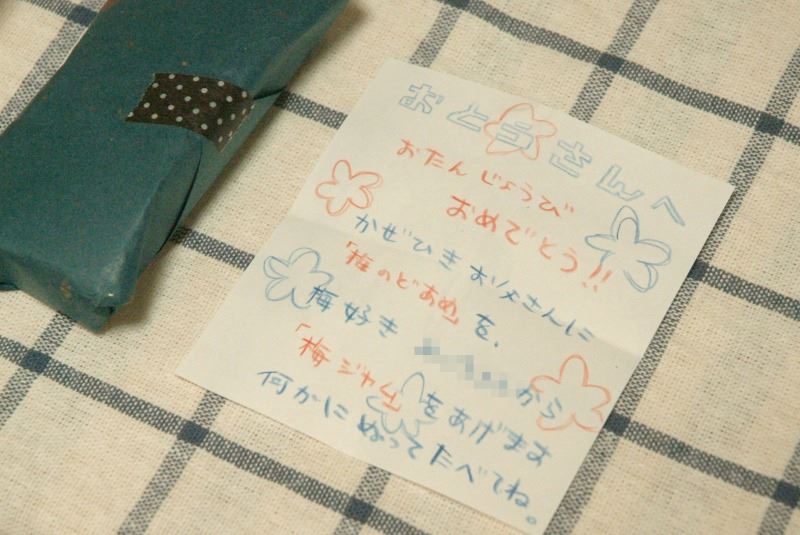 おとうさんへ
おたんじょうび
おめでとう!!
かぜひきお父さんに
「梅のどあめ」を、
梅好き から
「梅ジャム」をあげます
何かにぬってたべてね。